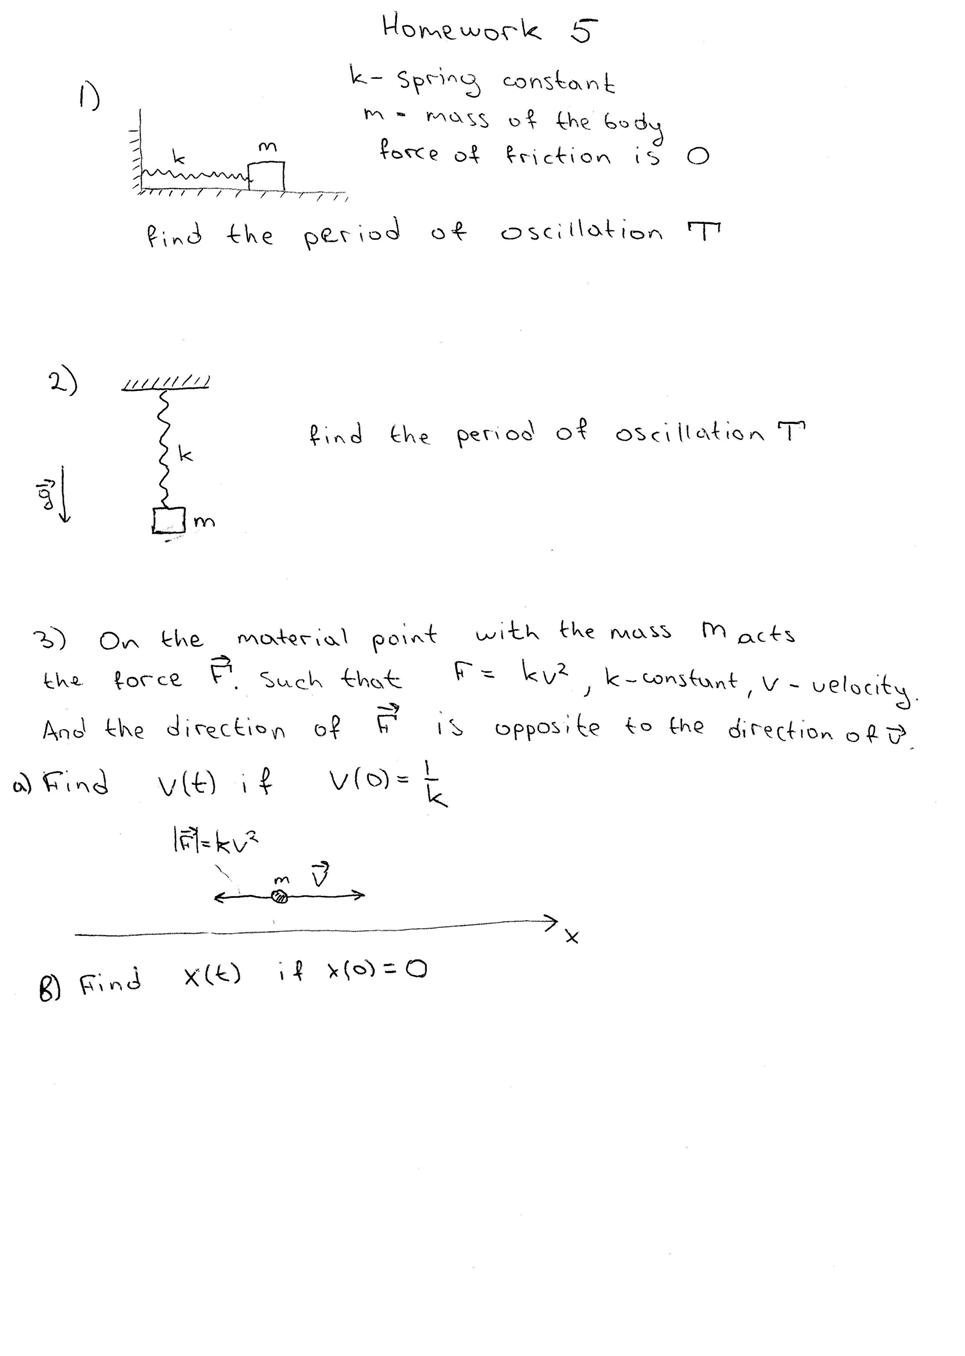 Homework 5
k- spring constant
1)
m - mass of the body
force of friction is 0
k
m
find the period of oscillation T
2)
find the period of oscillation T
k
g
m
3) On the material point with the mass m acts
the force F⃗. Such that F = kv², k-constant, v - velocity.
And the direction of F⃗ is opposite to the direction of v⃗.
a) Find v(t) if v(0) = 1/k
|F⃗| = kv²
m v⃗
x
B) Find x(t) if x(0) = 0